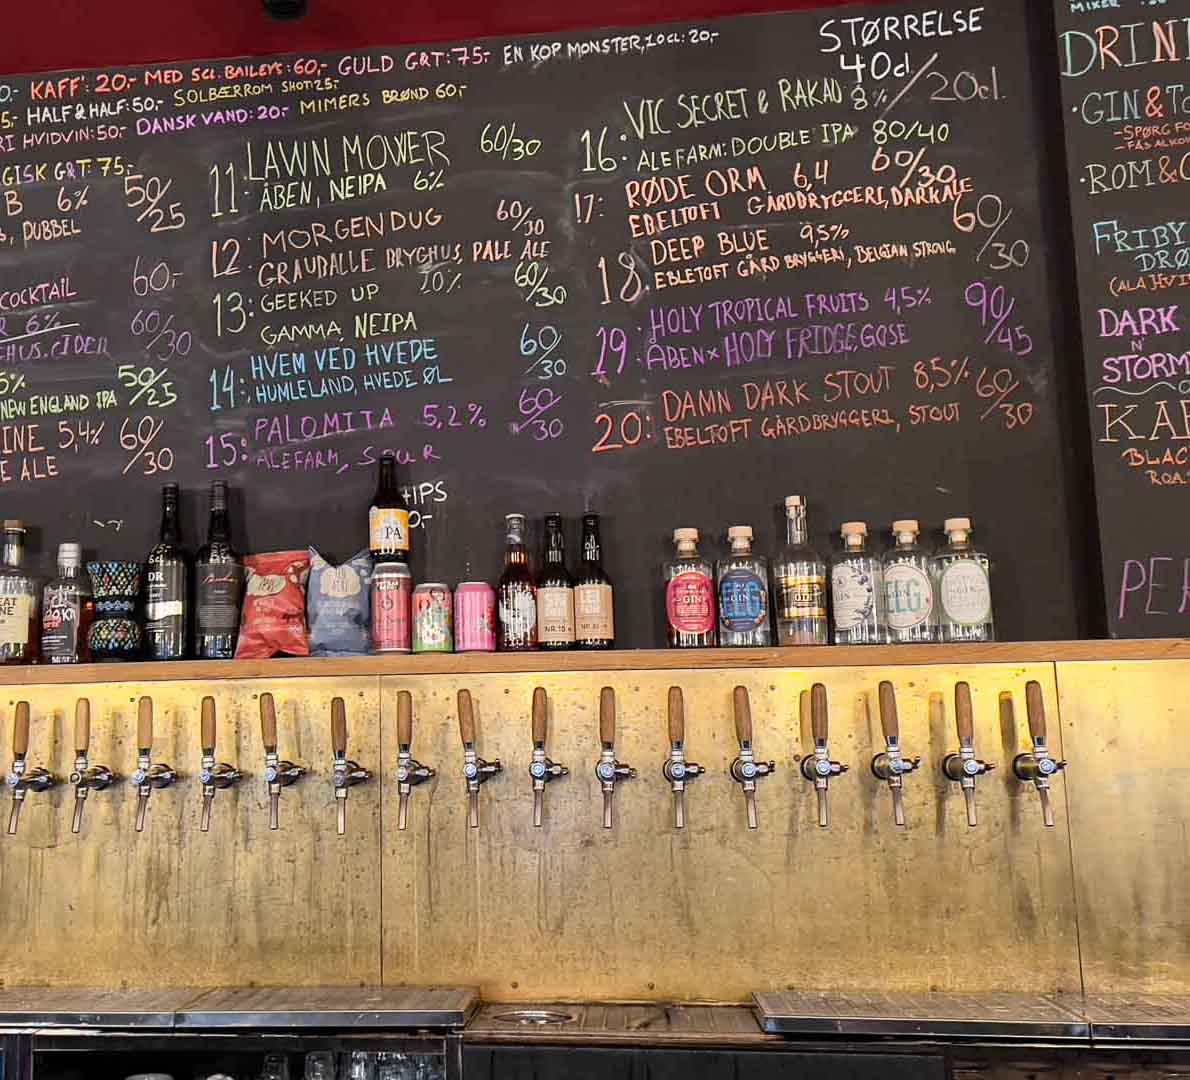 KAFF: 20,- MED 5CL. BAILEYS: 60,- GULD G&T: 75,- EN KOP MONSTER, 20CL: 20,-
HALF & HALF: 50,- SOLBÆRROM SHOT: 25,-
HVIDVIN: 50,- DANSK VAND: 20,- MIMERS BRØND 60,-
G&T: 75,-
B 6%
50/25
DUBBEL
COCKTAIL 60,-
6% 60/30
CIDER
5% 50/25
NEW ENGLAND IPA
5,4% 60/30
ALE
11: LAWN MOWER 60/30
ÅBEN, NEIPA 6%
12: MORGENDUG 60/30
GRAUDALLE BRYGHUS, PALE ALE
13: GEEKED UP 60/30
GAMMA, NEIPA
14: HVEM VED HVEDE 60/30
HUMLELAND, HVEDE ØL
15: PALOMITA 5,2% 60/30
ALEFARM, SOUR
STØRRELSE
40cl/20cl.
16: VIC SECRET & RAKAU 8%
ALEFARM: DOUBLE IPA 80/40
17: RØDE ORM 6,4 60/30
EBELTOFT GÅRDBRYGGERI, DARK ALE
18. DEEP BLUE 9,5% 60/30
EBLETOFT GÅRD BRYGGERI, BELGIAN STRONG
19: HOLY TROPICAL FRUITS 4,5% 90/45
ÅBEN x HOLY FRIDGE, GOSE
20: DAMN DARK STOUT 8,5% 60/30
EBELTOFT GÅRDBRYGGERI, STOUT
MIXER
DRIN
· GIN & TO
- SPØRG FO
- FÅS ALKO
· ROM & C
FRIBY
DRØ
(ALA HVI
DARK
N'
STORMY
KA
BLAC
ROA
PE
IPA
NR. 10
GIN
ELG
GIN
GIN
ELG
GIN